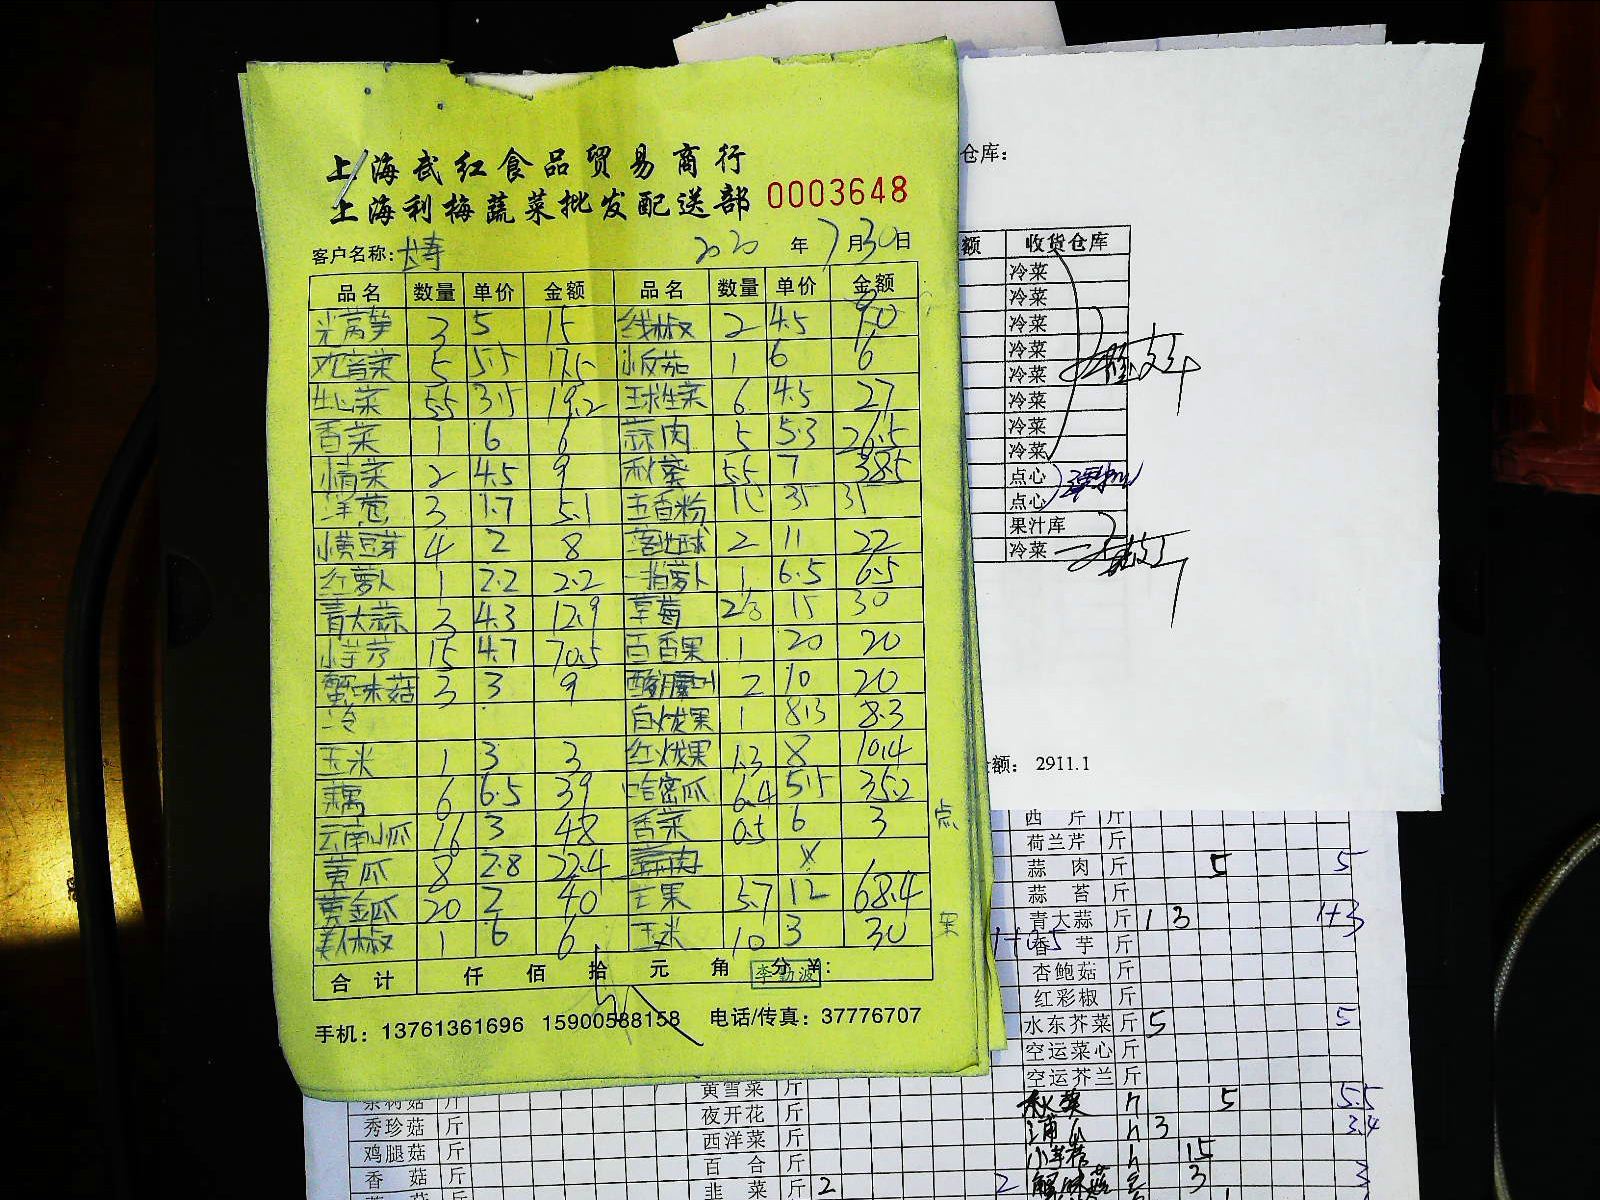 上海武红食品贸易商行
上海利梅蔬菜批发配送部 0003648
客户名称: 2020 年 7 月 30 日
品名 数量 单价 金额 品名 数量 单价 金额
光莴笋 3 5 15 线椒 2 4.5 9.0
5 小反茄 1 6 6
生心菜 5.5 3.5 19.2 球生菜 6 4.5 27
香菜 1 6 6 蒜肉 5 5.3 26.5
2 4.5 9 秋葵 5.5 7 38.5
洋葱 3 1.7 5.1 五香粉 35 35
小黄豆芽 4 2 8 2 11 22
红萝卜 1 2.2 2.2 1 6.5 6.5
青大蒜 3 4.3 12.9 草莓 15 30
小芋艿 15 4.7 70.5 百香果 1 20 20
蟹味菇 3 3 9 2 10 20
冷 白火龙果 1 8.3 8.3
玉米 1 3 3 红火龙果 1.3 8 10.4
藕 6 6.5 39 哈密瓜 6.4 5.5 35.2
云南小瓜 16 3 48 香菜 0.5 6 3 点
黄瓜 8 2.8 22.4 蒜肉
黄金瓜 20 2 40 芒果 5.7 12 68.4
美人椒 1 6 6 玉米 10 3 30 果
合计 仟 佰 拾 元 角 分 ¥:
李勤波
手机：13761361696 15900588158 电话/传真：37776707
仓库：
额 收货仓库
冷菜
冷菜
冷菜
冷菜
冷菜
冷菜
冷菜
冷菜
点心
点心
果汁库
冷菜
额： 2911.1
西芹 斤
荷兰芹 斤
蒜肉 斤 5 5
蒜苔 斤
青大蒜 斤 1 3 1+3
香芋 斤
杏鲍菇 斤
红彩椒 斤
水东芥菜 斤 5 5
空运菜心 斤
空运芥兰 斤
秋葵 5 5.5
3 3.4
15
蟹味菇 3 3
黄雪菜 斤
夜开花 斤
西洋菜 斤
百合 斤
韭菜 斤 2 2
茶树菇 斤
秀珍菇 斤
鸡腿菇 斤
香菇 斤